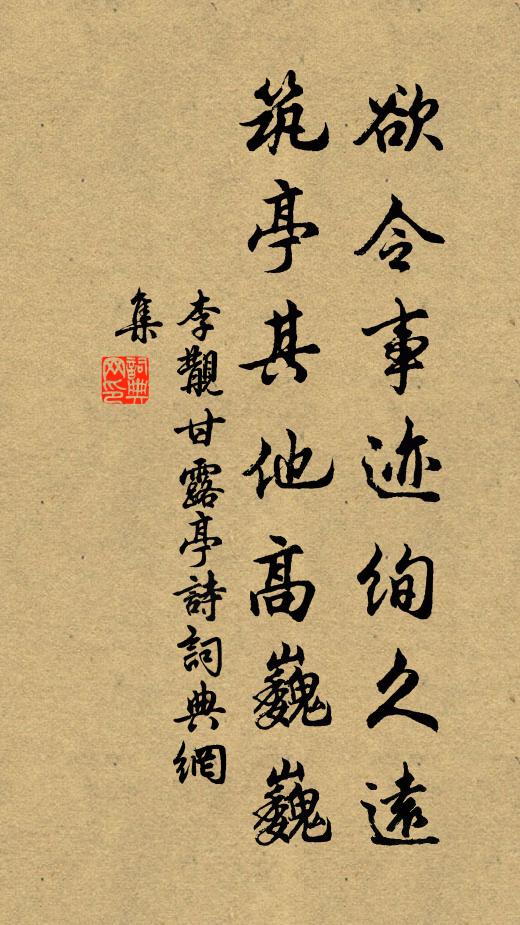 欲令事迹绚久远
筑亭其他高巍巍
李觏甘露亭詩詞典網
集
詞典网印